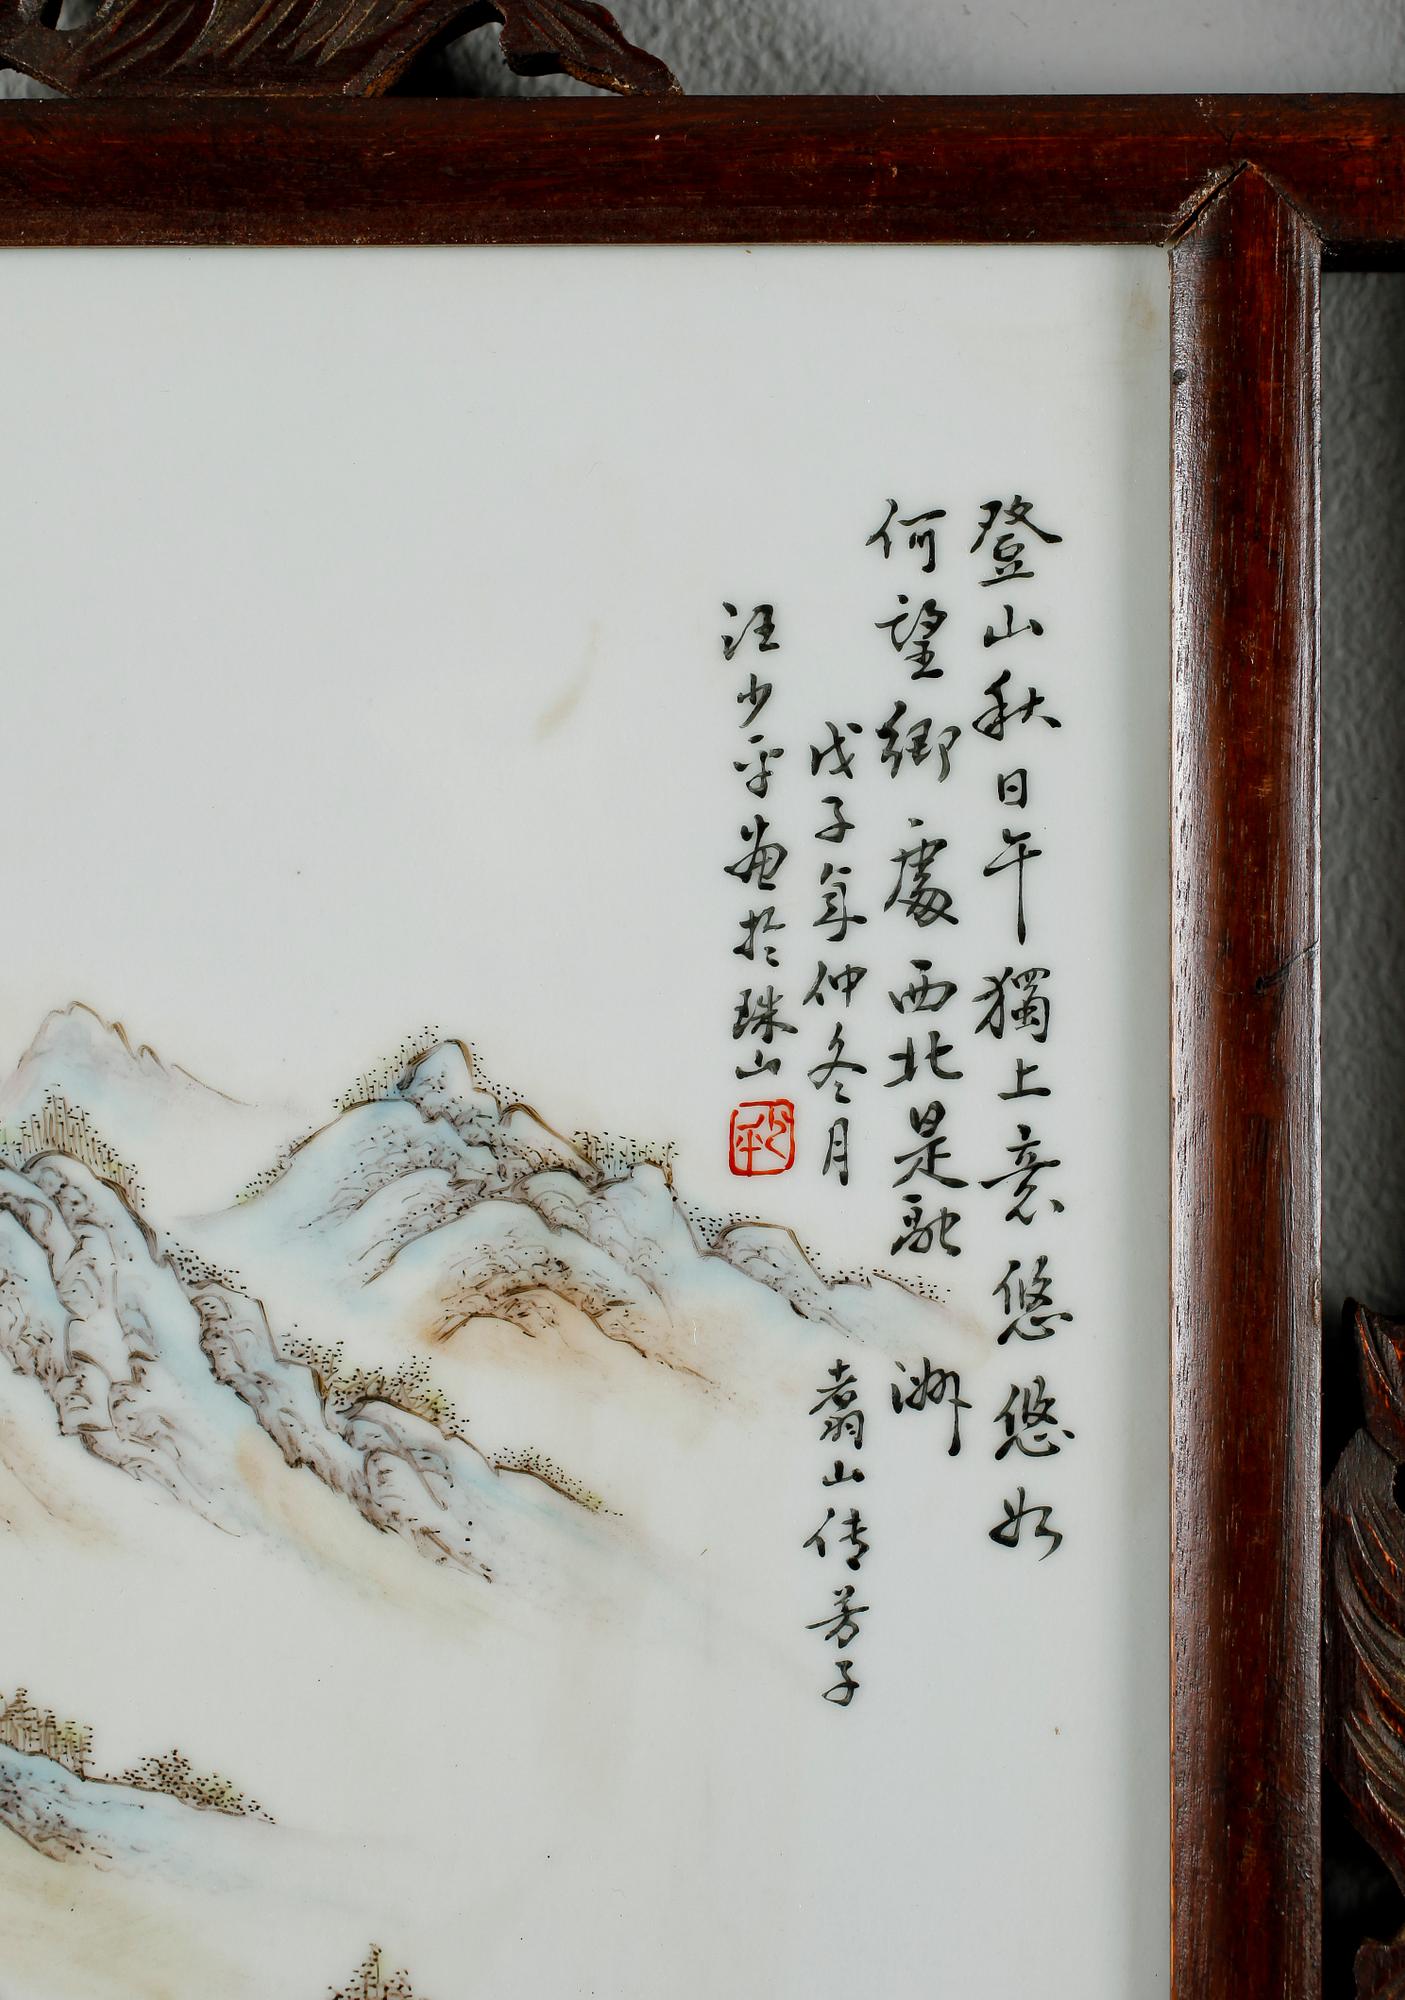 登山秋日午獨上意悠悠如
何望鄉處西北是融洲
戊子年仲冬月 翥山傳芳子
汪少平畫於珠山
少平